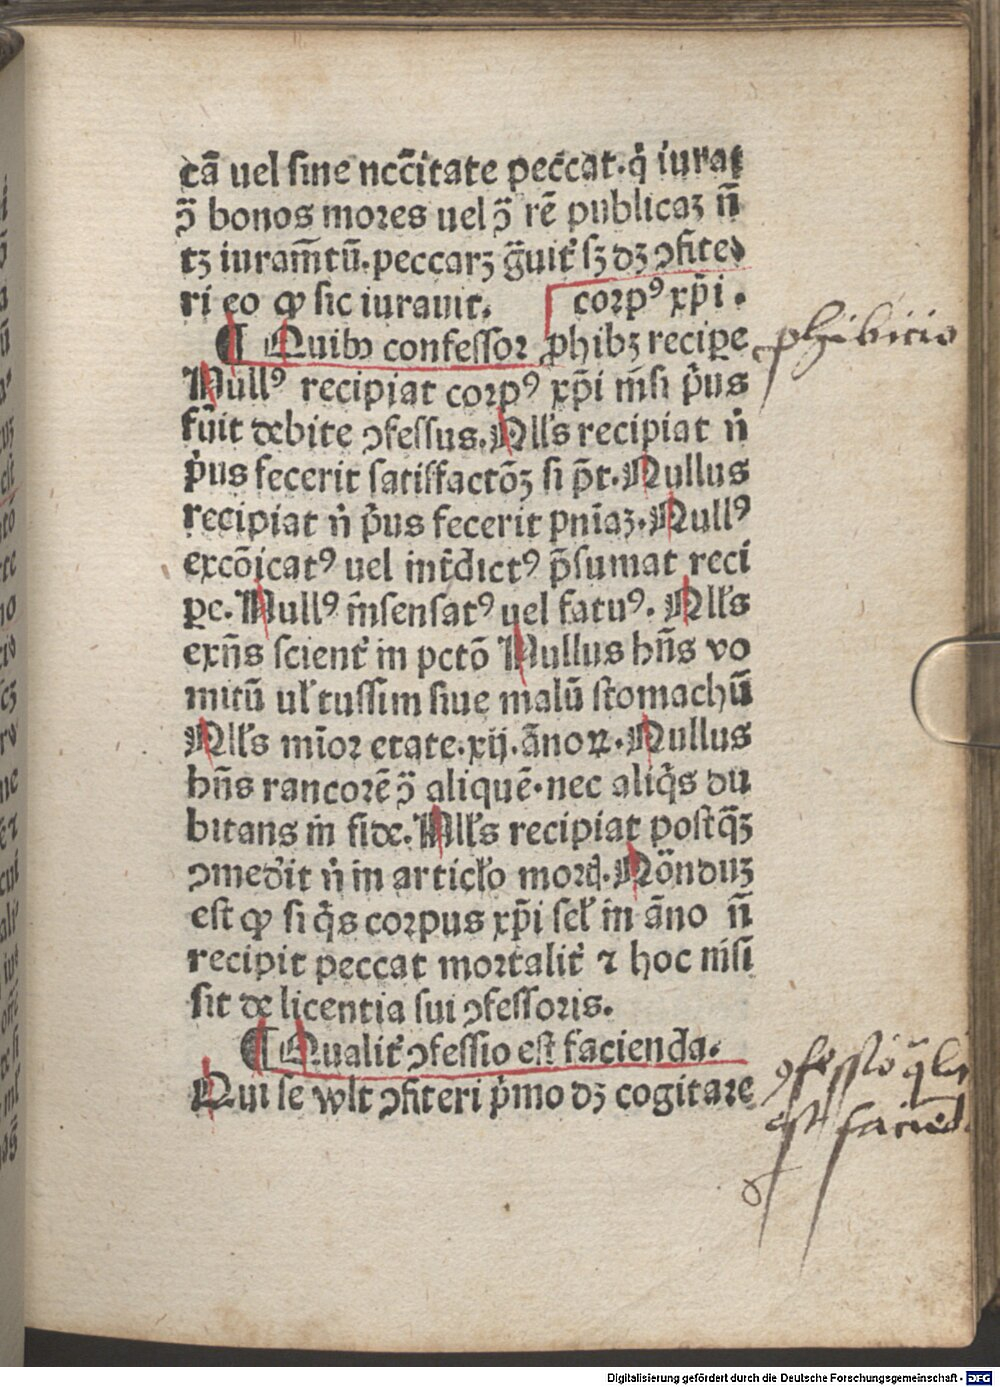 cā uel sine nccītate peccat. q̄ iurat
ꝯ̄ bonos mores uel ꝯ̄ rē publicaꝫ n̄
tꝫ iuram̄tū. peccarꝫ ḡuit᷑ sꝫ dꝫ ꝯfite
ri eo ꝙ sic iurauit.
corpꝰ xp̄i.
¶ Quibꝫ confessor ꝓhibꝫ recipe
Nullꝰ recipiat corpꝰ xp̄i n̄si p̄us
fūit debite ꝯfessus. Nll̓s recipiat n̓
p̓us fecerit satisfactōꝫ si p̄t. Nullus
recipiat n̓ p̓us fecerit pn̄iaꝫ. Nullꝰ
excōicatꝰ uel int̓dictꝰ p̄sumat reci
pe. Nullꝰ īnsensatꝰ uel fatuꝰ. Nll̓s
exn̄s scient̓ in pctō Nullus hn̄s vo
mitū ul̓ tussim siue malū stomachū
Nll̓s mīor etate. xij. ānoꝝ. Nullus
hn̄s rancorē ꝯ̄ aliquē. nec aliq̓s du
bitans in fide. Nll̓s recipiat postq̄ꝫ
ꝯmed̓it n̓ in articl̓o mort̓. Nōnduꝫ
est ꝙ si q̓s corpus xp̄i sel̓ in āno n̄
recipit peccat mortalit̓ ⁊ hoc nisi
sit de licentia sui ꝯfessoris.
¶ Qualit̓ ꝯfessio est facienda.
Qui se wlt ꝯfiteri p̓mo dꝫ cogitare
phibicio
ꝯfessio q̄li
est faciēd
Digitalisierung gefördert durch die Deutsche Forschungsgemeinschaft - DFG